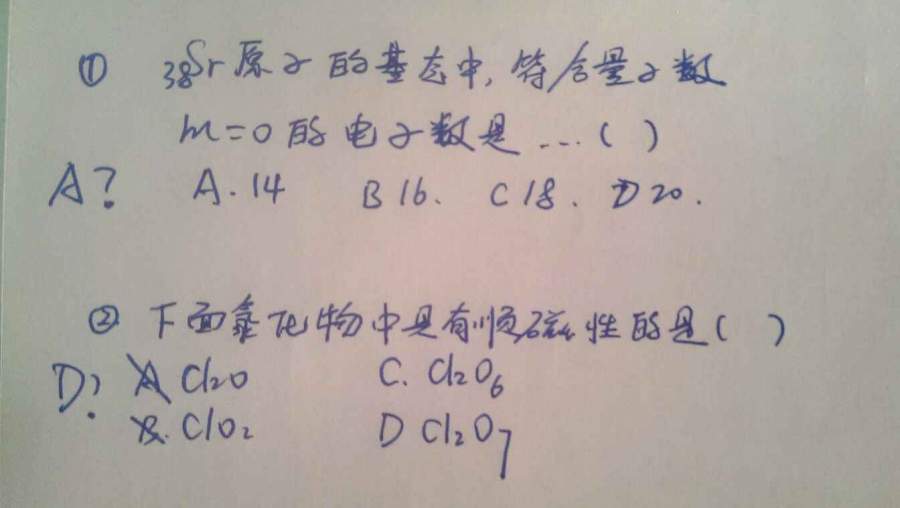 ① ₃₈Sr原子的基态中,符合量子数
m=0的电子数是...( )
A? A.14 B 16. C 18. D 20.
② 下面氯化物中具有顺磁性的是( )
D? A Cl₂O C. Cl₂O₆
B. ClO₂ D Cl₂O₇